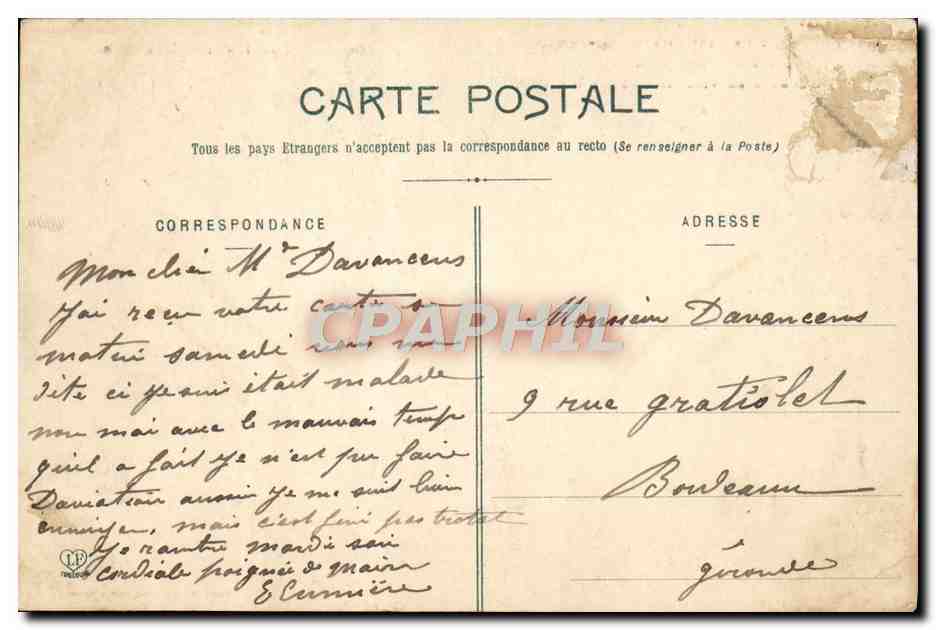 CARTE POSTALE
Tous les pays Etrangers n'acceptent pas la correspondance au recto (Se renseigner à la Poste)
CORRESPONDANCE
Mon cher Mr Davancens
J'ai reçu votre carte se
matin samedi vous me
dite ci je suis était malade
non mai avec le mauvais temp
quil a fait je n'est pu faire
Daviation aussi je me suit bien
ennuyer, mais c'est fini pas trotot
Je rantre mardi soir
cordiale poignée de main
E Lumière
LF
ADRESSE
Monsieur Davancens
9 rue gratiolet
Bordeaux
gironde
CPAPHIL